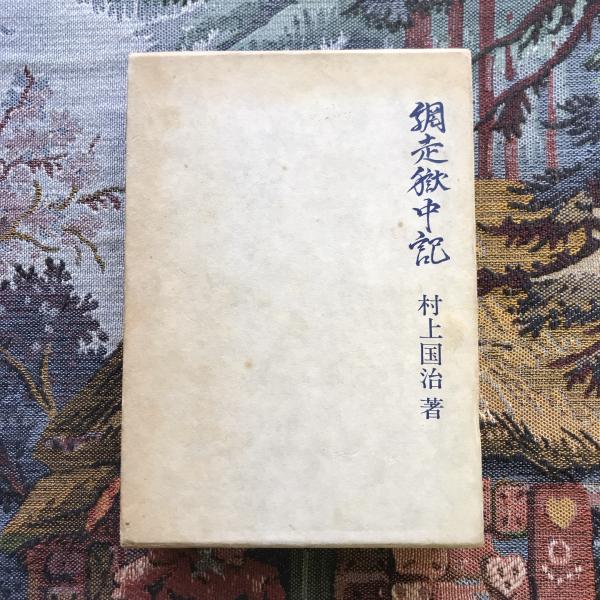 網走獄中記
村上国治 著